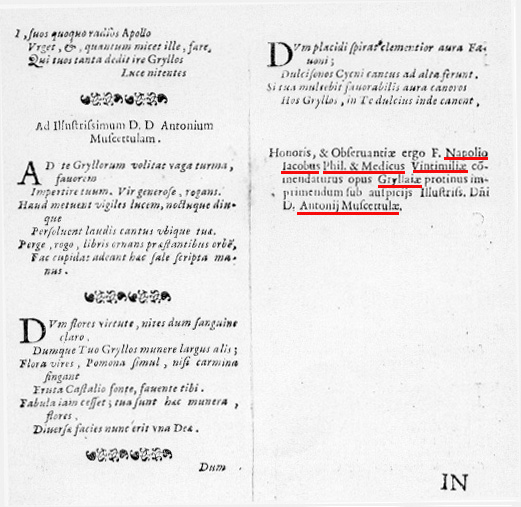 I, suos quoquo radios Apollo
Vrget, &, quantum micet ille, fare,
Qui tuos tanta dedit ire Gryllos
Luce nitentes
Ad Illustrissimum D. D Antonium
Muscettulam.
AD te Gryllorum volitat vaga turma,
favorem
Impertire tuum. Vir generose, rogans.
Haud metuent vigiles lucem, noctuque diu-
que
Persoluent laudis cantus vbique tua.
Perge, rogo, libris ornans præstantibus orbē,
Fac cupidat adeant hac sale scripta ma-
nus.
DVm flores virtute, nites dum sanguine
claro.
Dumque Tuo Gryllos munere largus alis;
Flora vires, Pomona simul, nisi carmina
fingant
Eruta Castalio fonte, fauente tibi.
Fabula iam cesset; tua sunt hac munera,
flores.
Diuersæ facies nunc erit vna Dea.
Dum
DVm placidi spirat clementior aura Fa-
uoni;
Dulcisonos Cycni cantus ad alta ferunt.
Si tua mulcebit fauorabilis aura canoros
Hos Gryllos, in Te dulcius inde canent,
Honoris, & Obseruantiæ ergo F. Napolio
Iacobus Phil. & Medicus Vintimiliæ cō-
mendaturus opus Gryllaiæ protinus im-
primendum sub auspicijs Illustriss. Dñi
D. Antonij Muscettulæ,
IN